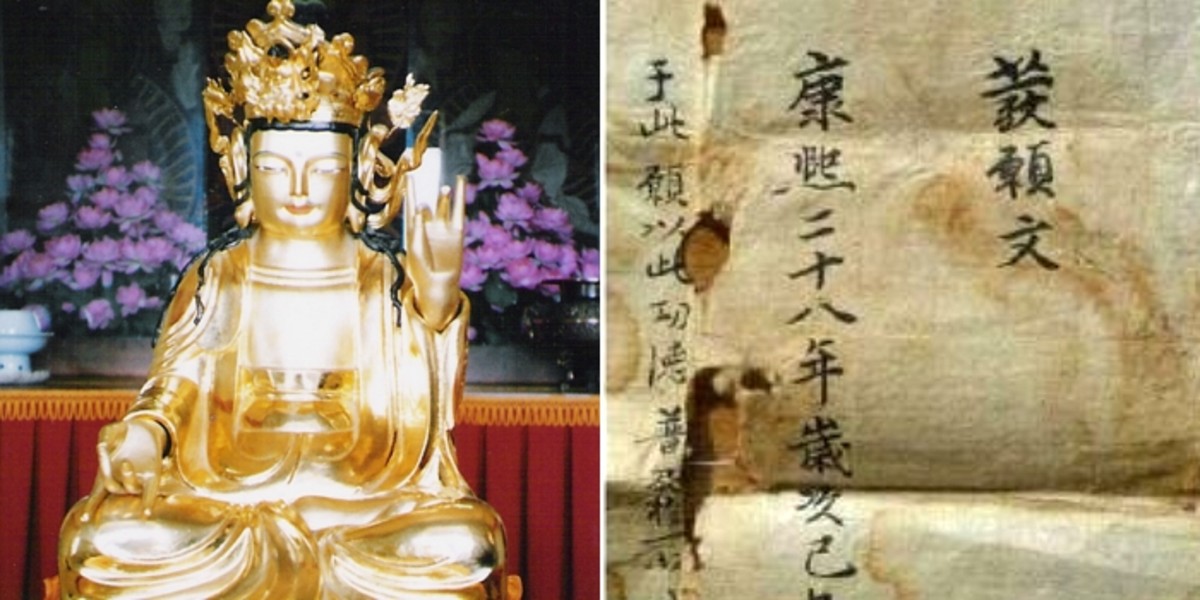 發願文
康熙二十八年歲次己
于此願以此功德普